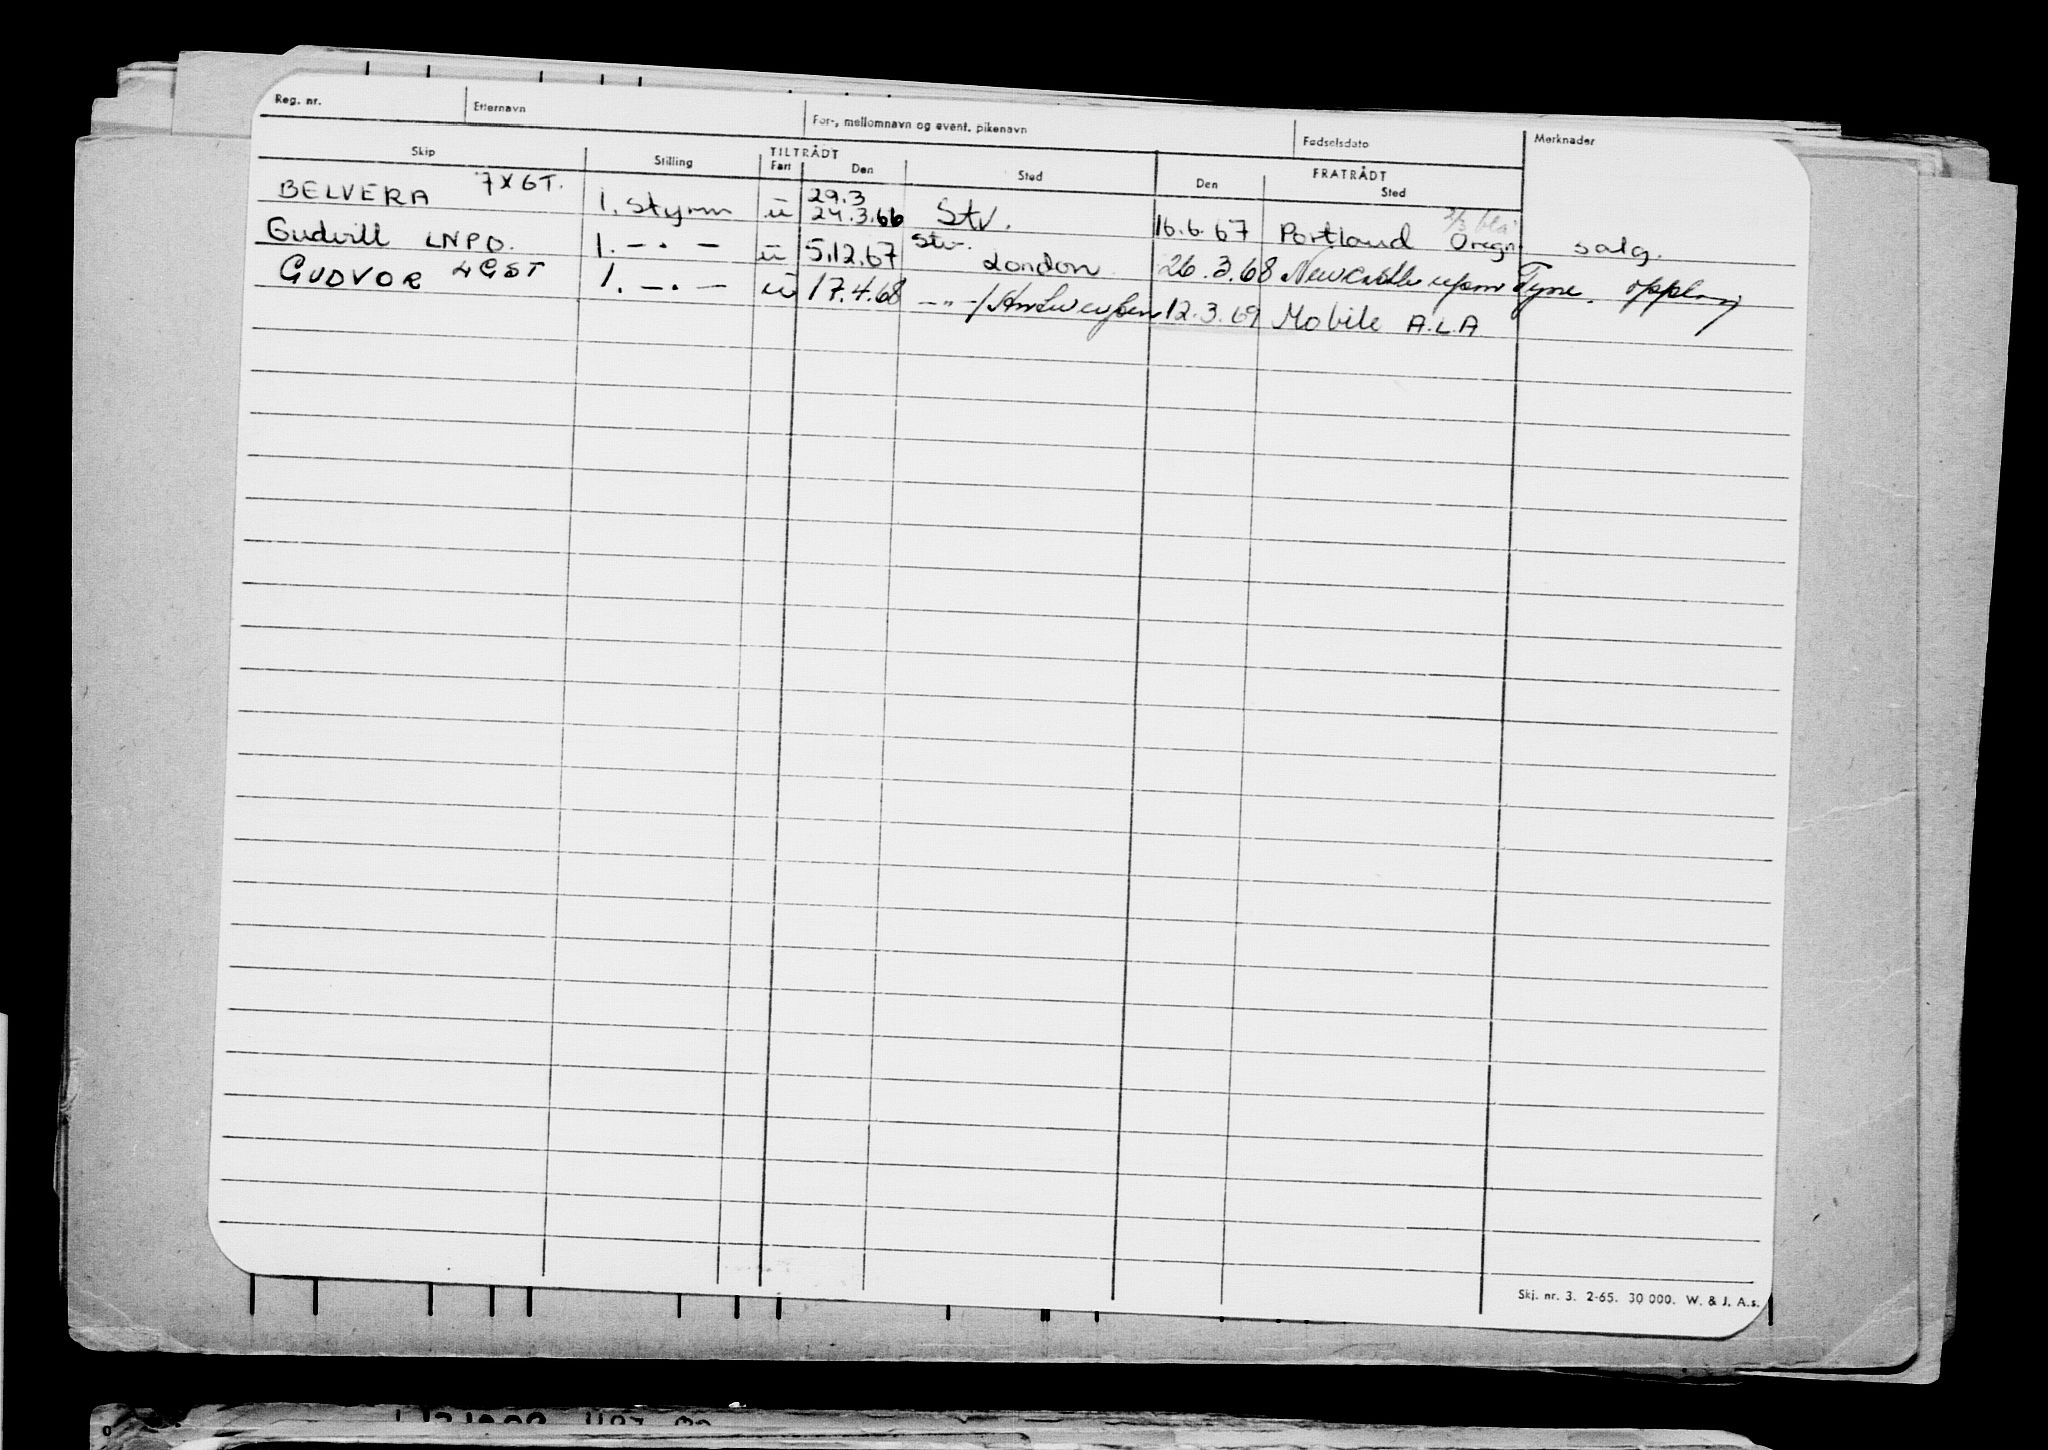 Reg. nr. Etternavn For-, mellomnavn og event. pikenavn Fødselsdato Merknader
Skip Stilling TILTRÅDT FRATRÅDT
Fart Den Sted Den Sted
29.3
BELVERA 7XGT. 1. styrm u 24.3.66 Stv. 16.6.67 Portland Oregn salg.
Gudvill LNPO. 1. -.- u 5.12.67 Stv. London 26.3.68 Newcastle upon Tyne.
GUDVOR 4GST 1. -.- u 17.4.68 -"-/Antwerpen 12.3.69 Mobile A.L.A
Skj. nr. 3. 2-65. 30 000. W. & J. A.s.